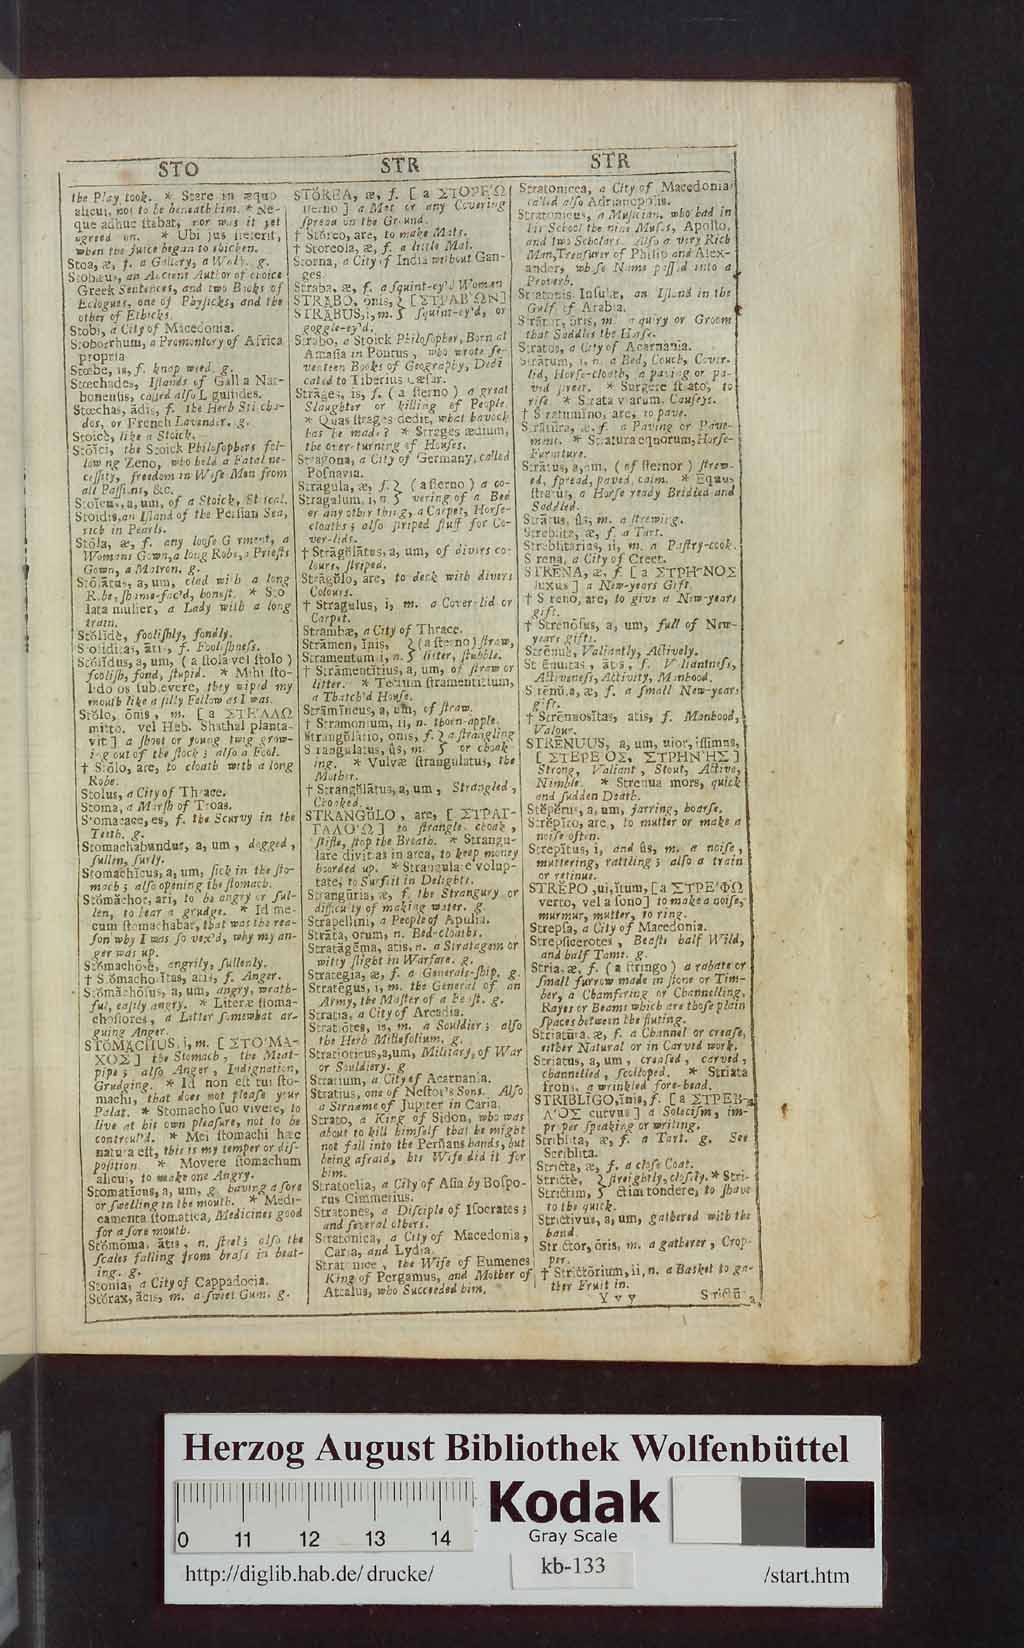 STO
the Play took. * Stare in æquo
alicui, not to be beneath him. * Ne-
que adhuc stabat, nor was it yet
agreed on. * Ubi jus steterit,
when the juice began to thicken.
Stoa, æ, f. a Gallery, a Walk. g.
Stobæus, an Ancient Author of choice
Greek Sentences, and two Books of
Eclogues, one of Physicks, and the
other of Ethicks.
Stobi, a City of Macedonia.
Stoborrhum, a Promontory of Africa
propria
Stœbe, is, f. knap weed. g.
Stœchades, Islands of Gallia Nar-
bonensis, called also Ligustides.
Stœchas, ădis, f. the Herb Sticha-
dos, or French Lavender. g.
Stoicè, like a Stoick.
Stŏĭci, the Stoick Philosophers fol-
lowing Zeno, who held a Fatal ne-
cessity, freedom in Wise Men from
all Passions, &c.
Stoĭcus, a, um, of a Stoick, Stoical.
Stoidis, an Island of the Persian Sea,
rich in Pearls.
Stŏla, æ, f. any loose Garment, a
Womans Gown, a long Robe, a Priests
Gown, a Matron. g.
Stŏlātus, a, um, clad with a long
Robe, shame-fac'd, honest. * Sto
lata mulier, a Lady with a long
train.
Stŏlĭdè, foolishly, fondly.
Stoliditas, ātis, f. Foolishness.
Stŏlĭdus, a, um, ( a stola vel stolo )
foolish, fond, stupid. * Mihi sto-
lido os sublevere, they wiped my
mouth like a silly Fellow as I was.
Stŏlo, ōnis, m. [ a ΣΤΕΛΛΩ
mitto. vel Heb. Shathal planta-
vit ] a shoot or young twig grow-
ing out of the stock ; also a Fool.
† Stŏlo, are, to cloath with a long
Robe.
Stolus, a City of Thrace.
Stoma, a Marsh of Troas.
Stomacace, es, f. the Scurvy in the
Teeth. g.
Stomachabundus, a, um, dogged,
sullen, surly.
Stomachĭcus, a, um, sick in the sto-
mach ; also opening the stomach.
Stŏmăchor, ari, to be angry or sul-
len, to bear a grudge. * Id me-
cum stomachabar, that was the rea-
son why I was so vex'd, why my an-
ger was up.
Stŏmachōsè, angrily, sullenly.
† Stŏmachosĭtas, atis, f. Anger.
Stŏmăchōsus, a, um, angry, wrath-
ful, easily angry. * Literæ stoma-
chosiores, a Letter somewhat ar-
guing Anger.
STŎMĂCHUS, i, m. [ ΣΤΟ'ΜΑ-
ΧΟΣ ] the Stomach, the Meat-
pipe ; also Anger, Indignation,
Grudging. * Id non est tui sto-
machi, that does not please your
Palat. * Stomacho suo vivere, to
live at his own pleasure, not to be
controul'd. * Mei stomachi hæc
natura est, this is my temper or dis-
position. * Movere stomachum
alicui, to make one Angry.
Stomaticus, a, um, g. having a sore
or swelling in the mouth. * Medi-
camenta stomatica, Medicines good
for a sore mouth.
Stŏmōma, ătis, n. steel ; also the
scales falling from brass in beat-
ing. g.
Stonia, a City of Cappadocia.
Stŏrax, ăcis, m. a sweet Gum. g.
STR
STŎREA, æ, f. [ a ΣΤΟΡΕ'Ω
sterno ] a Mat or any Covering
spread on the Ground.
† Stŏreo, are, to make Mats.
† Storeola, æ, f. a little Mat.
Storna, a City of India without Gan-
ges.
Straba, æ, f. a squint-ey'd Woman
STRABO, onis, } [ ΣΤΡΑΒ'ΩΝ ]
STRABUS, i, m. } squint-ey'd, or
goggle-ey'd.
Strabo, a Stoick Philosopher, Born at
Amasia in Pontus, who wrote se-
venteen Books of Geography, Dedi
cated to Tiberius Cæsar.
Strāges, is, f. ( a sterno ) a great
Slaughter or killing of People.
* Quas strages dedit, what havock
has he made ? * Strages ædium,
the over-turning of Houses.
Stragona, a City of Germany, called
Posnavia.
Stragula, æ, f. } ( a sterno ) a co-
Stragulum, i, n. } vering of a Bed
or any other thing, a Carpet, Horse-
cloaths ; also striped stuff for Co-
ver-lids.
† Strāgŭlātus, a, um, of divers co-
lours, striped.
Strāgŭlo, are, to deck with divers
Colours.
† Stragulus, i, m. a Cover-lid or
Carpet.
Strambæ, a City of Thrace.
Strāmen, ĭnis, } ( a sterno ) straw,
Stramentum i, n. } litter, stubble.
† Strāmentĭtius, a, um, of straw or
litter. * Tectum stramentitium,
a Thatch'd House.
Strāmĭneus, a, um, of straw.
† Stramonium, ii, n. thorn-apple.
Strangŭlatio, onis, f. } a strangling
Strangulatus, ûs, m. } or choak
ing. * Vulvæ strangulatus, the
Mother.
† Strangŭlātus, a, um, Strangled,
Choaked.
STRANGŬLO, are, [ ΣΤΡΑΓ-
ΓΑΛΟ'Ω ] to strangle, choak,
stifle, stop the Breath. * Strangu-
lare divitias in arca, to keep money
hoarded up. * Strangulare volup-
tate, to Surfeit in Delights.
Stranguria, æ, f. the Strangury or
difficulty of making water. g.
Strapellini, a People of Apulia.
Strāta, orum, n. Bed-cloaths.
Stratāgēma, atis, n. a Stratagem or
witty slight in Warfare. g.
Strategia, æ, f. a Generals-ship. g.
Strategus, i, m. the General of an
Army, the Master of a Feast. g.
Stratia, a City of Arcadia.
Stratiōtes, is, m. a Souldier ; also
the Herb Millefolium. g.
Stratioticus, a, um, Military, of War
or Souldiery. g
Stratium, a City of Acarnania.
Stratius, one of Nestor's Sons. Also
a Sirname of Jupiter in Caria.
Strato, a King of Sidon, who was
about to kill himself that he might
not fall into the Persians hands, but
being afraid, his Wife did it for
him.
Stratoclia, a City of Asia by Bospo-
rus Cimmerius.
Stratones, a Disciple of Isocrates ;
and several others.
Stratŏnica, a City of Macedonia,
Caria, and Lydia.
Stratonice, the Wife of Eumenes
King of Pergamus, and Mother of
Attalus, who Succeeded him.
STR
Stratonicea, a City of Macedonia
called also Adrianopolis.
Stratonicus, a Musician, who had in
his School the nine Muses, Apollo,
and two Scholars. Also a very Rich
Man, Treasurer of Philip and Alex-
ander, whose Name passed into a
Proverb.
Stratonis Insulæ, an Island in the
Gulf of Arabia.
Strātor, ōris, m. a quiry or Groom
that Saddles the Horse.
Stratus, a City of Acarnania.
Stratum, i, n. a Bed, Couch, Cover-
lid, Horse-cloath, a paving or pa-
ved street. * Surgere strato, to
rise. * Strata viarum. Causeys.
† Stratumino, are, to pave.
Strātūra, æ, f. a Paving or Pave-
ment. * Stratura equorum, Horse-
Furniture.
Strātus, a, um, ( of sternor ) strew-
ed, spread, paved, calm. * Equus
stratus, a Horse ready Bridled and
Saddled.
Strātus, ûs, m. a strewing.
Streblita, æ, f. a Tart.
Streblitarius, ii, m. a Pastry-cook.
Strena, a City of Creet.
STRENA, æ, f. [ a ΣΤΡΗ'ΝΟΣ
luxus ] a New-years Gift.
† Streno, are, to give a New-years
gift.
† Strenōsus, a, um, full of New-
years gifts.
Strēnuè, Valiantly, Actively.
Strēnuitas, ātis, f. Valiantness,
Activeness, Activity, Manhood.
Strēnŭla, æ, f. a small New-years
gift.
† Strēnuosĭtas, atis, f. Manhood,
Valour.
STRĒNUUS, a, um, uior, issimus,
[ ΣΤΕΡΕ'ΟΣ, ΣΤΡΗΝ'ΗΣ ]
Strong, Valiant, Stout, Active,
Nimble. * Strenua mors, quick
and sudden Death.
Strĕpĕrus, a, um, jarring, hoarse.
Strĕpĭto, are, to mutter or make a
noise often.
Strepĭtus, i, and ûs, m. a noise,
muttering, rattling ; also a train
or retinue.
STREPO, ui, ĭtum, [ a ΣΤΡΕ'ΦΩ
verto, vel a sono ] to make a noise,
murmur, mutter, to ring.
Strepsa, a City of Macedonia.
Strepsicerotes, Beasts half Wild,
and half Tame. g.
Stria, æ, f. ( a stringo ) a rabate or
small furrow made in stone or Tim-
ber, a Chamfering or Channelling,
Rayes or Beams which are those plain
spaces between the fluting.
Striatūra, æ, f. a Channel or crease,
either Natural or in Carved work.
Striatus, a, um, creased, carved,
channelled, scolloped. * Striata
frons, a wrinkled fore-head.
STRIBLĪGO, ĭnis, f. [ a ΣΤΡΕΒ-
Λ'ΟΣ curvus ] a Solecism, im-
proper speaking or writing.
Striblita, æ, f. a Tart. g. See
Scriblita.
Stricta, æ, f. a close Coat.
Strictè, } streightly, closely. * Stri-
Strictim, } ctim tondere, to shave
to the quick.
Strictivus, a, um, gathered with the
hand.
Strictor, ōris, m. a gatherer, Crop-
per.
† Strictōrium, ii, n. a Basket to ga-
ther Fruit in.
Y v v
Herzog August Bibliothek Wolfenbüttel
0 11 12 13 14
Kodak
Gray Scale
kb-133
http://diglib.hab.de/drucke/
/start.htm